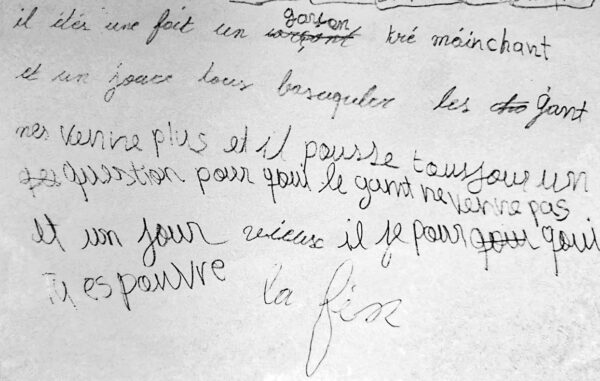 il étés une fait un garson tré mäinchant
et un joure tous basuquler les gant
nes venire plus et il pousse toussjour un
question pour qoui le gant ne venire pas
et un jour vieux il je pour qoui
Tu es pouvre
la fin